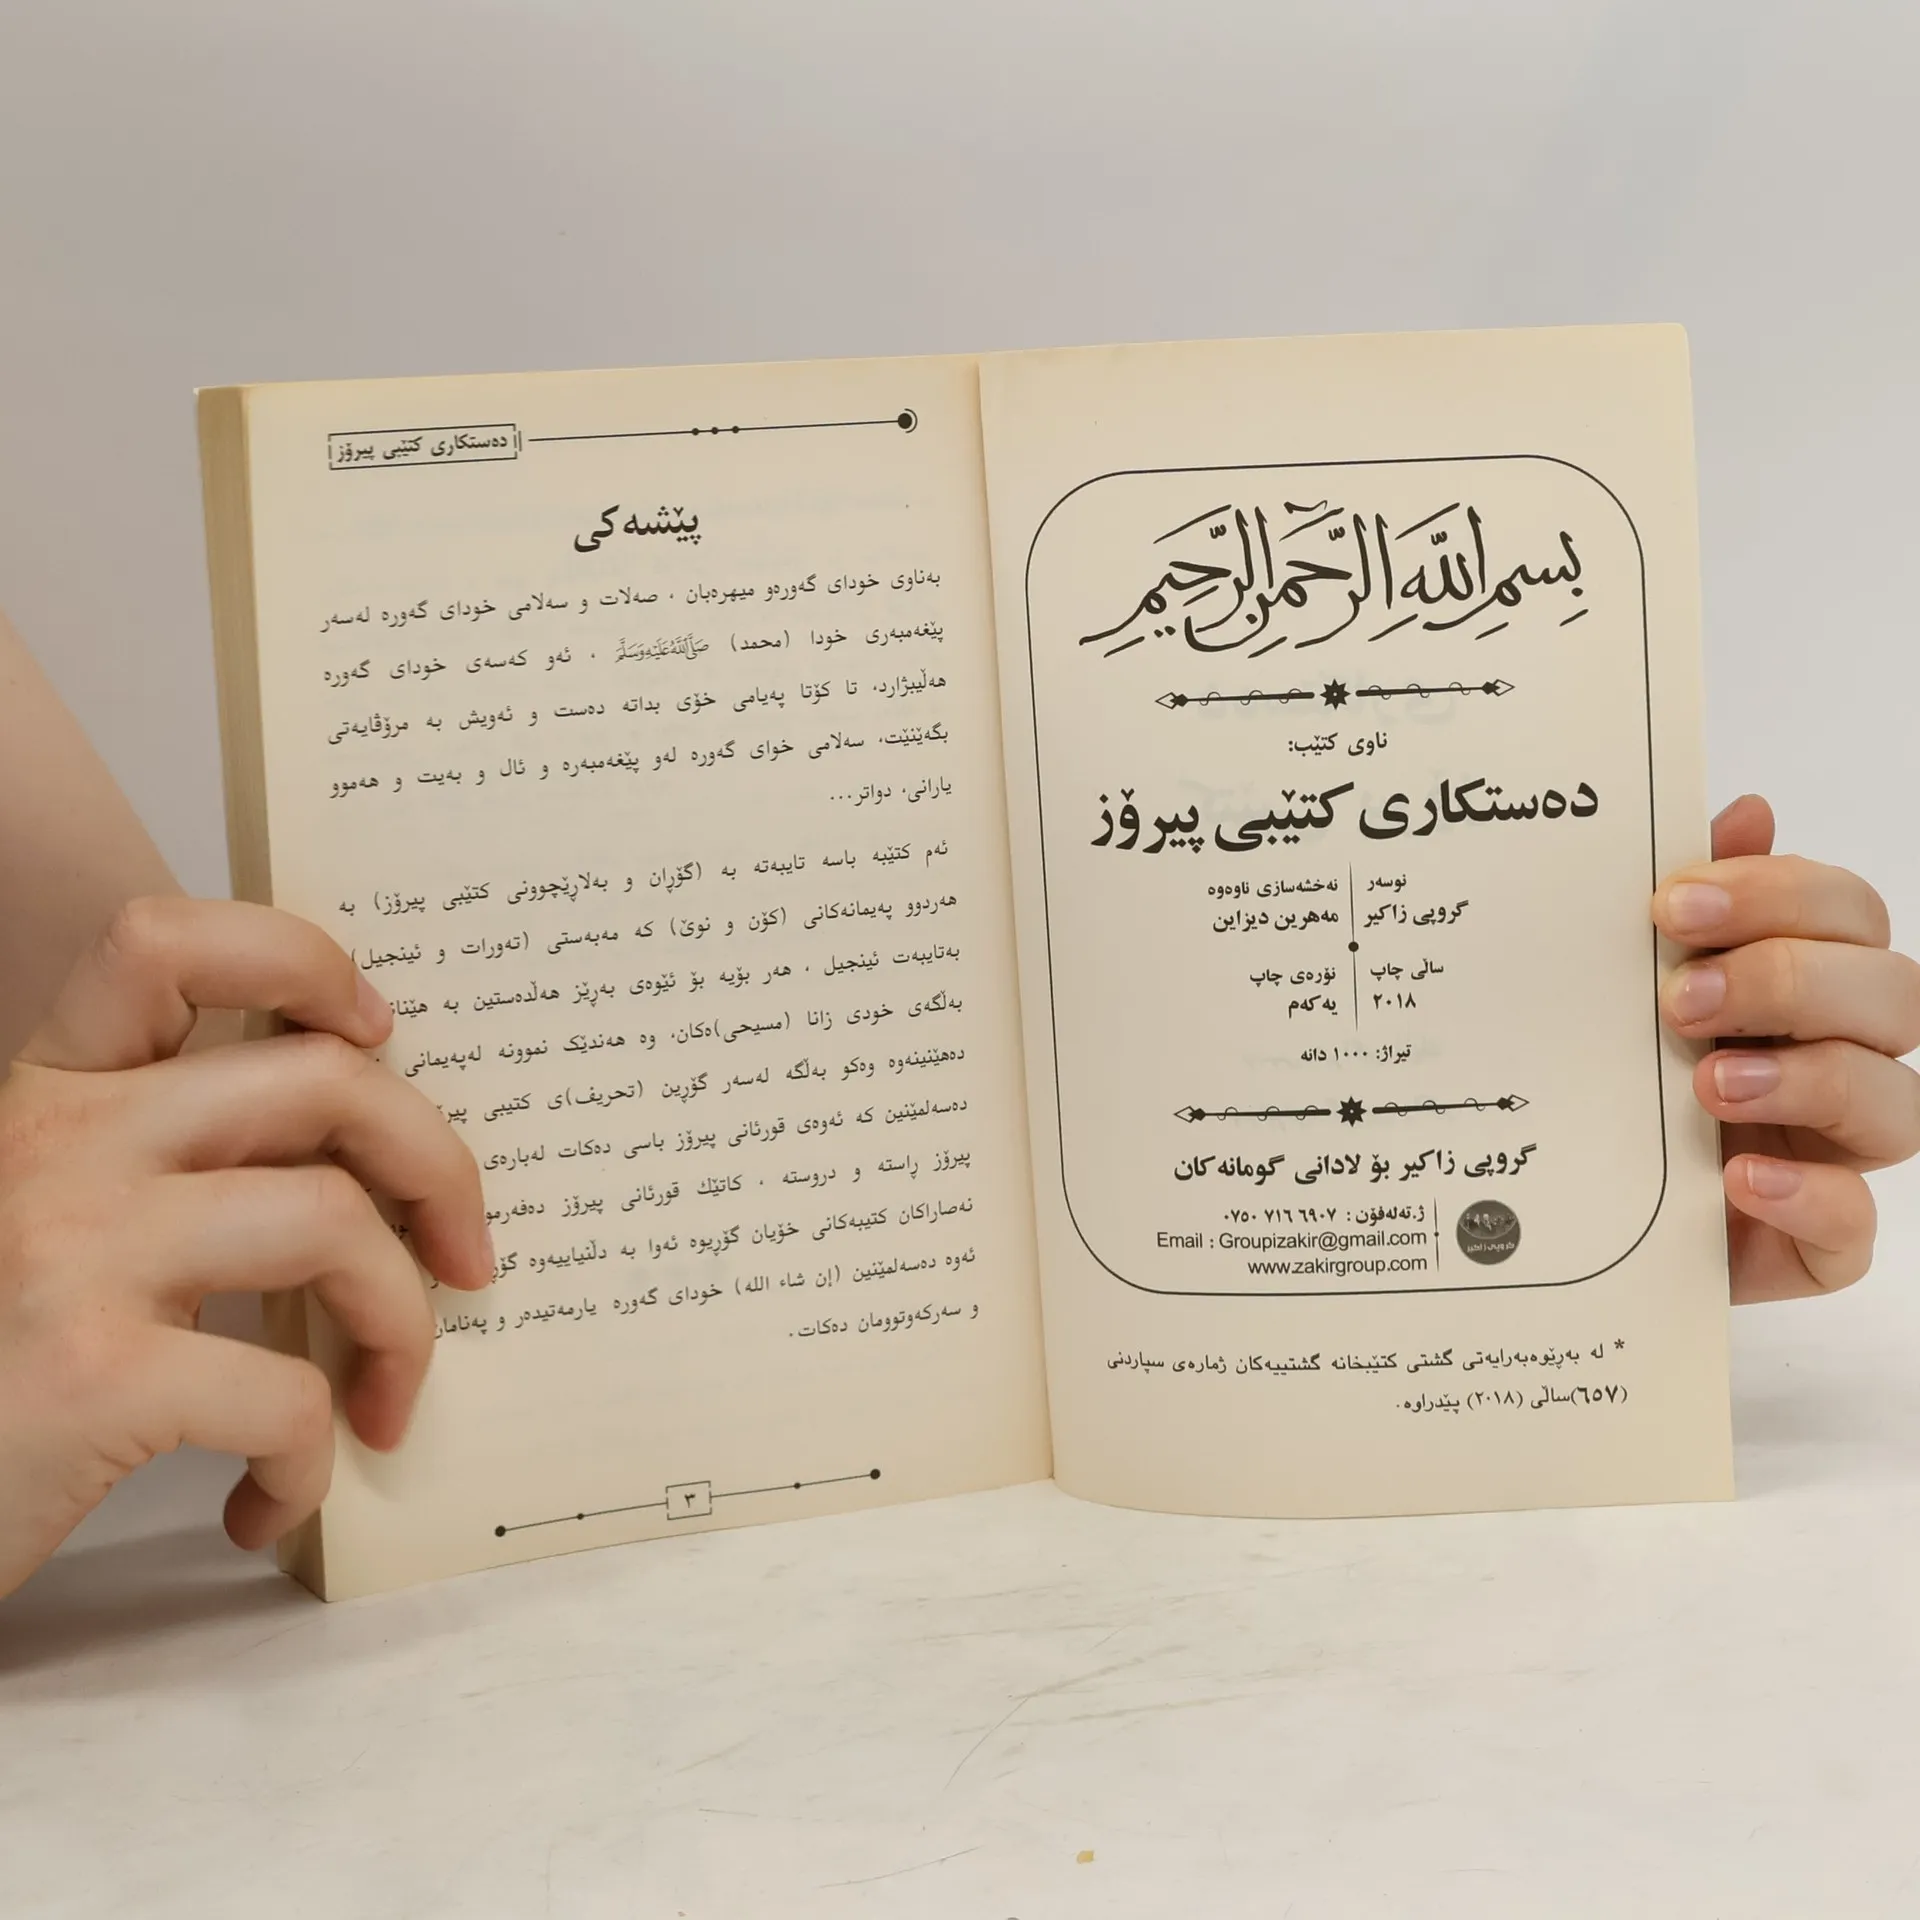 بسم الله الرحمن الرحيم
ناوی کتێب:
دەستکاری کتێبی پیرۆز
نوسەر
گروپی زاکیر
نەخشەسازی ناوەوە
مەهرین دیزاین
ساڵی چاپ
٢٠١٨
نۆرەی چاپ
یەکەم
تیراژ: ١٠٠٠ دانە
گروپی زاکیر بۆ لادانی گومانەکان
ژ.تەلەفۆن: ٠٧٥٠ ٧١٦ ٦٩٠٧
Email : Groupizakir@gmail.com
www.zakirgroup.com
گروپی زاکیر
* لە بەڕێوەبەرایەتی گشتی کتێبخانە گشتییەکان ژمارەی سپاردنی
(٦٥٧)ساڵی (٢٠١٨) پێدراوە.
دەستکاری کتێبی پیرۆز
پێشەکی
بەناوی خودای گەورەو میهرەبان ، صەلات و سەلامی خودای گەورە لەسەر
پێغەمبەری خودا (محمد) ﷺ ، ئەو کەسەی خودای گەورە
هەڵیبژارد، تا کۆتا پەیامی خۆی بداتە دەست و ئەویش بە مرۆڤایەتی
بگەێنێت، سەلامی خوای گەورە لەو پێغەمبەرە و ئال و بەیت و هەموو
یارانی، دواتر...
ئەم کتێبە باسە تایبەتە بە (گۆڕان و بەلاڕێچوونی کتێبی پیرۆز) بە
هەردوو پەیمانەکانی (کۆن و نوێ) کە مەبەستی (تەورات و ئینجیل)
بەتایبەت ئینجیل ، هەر بۆیە بۆ ئێوەی بەڕێز هەڵدەستین بە
بەڵگەی خودی زانا (مسیحی)ەکان، وە هەندێک نموونە لەپەیمانی
دەهێنینەوە وەکو بەڵگە لەسەر گۆڕین (تحریف)ی کتیبی
دەسەلمێنین کە ئەوەی قورئانی پیرۆز باسی دەکات لەبارەی
پیرۆز ڕاستە و دروستە ، کاتێك قورئانی پیرۆز
نەصاراکان کتیبەکانی خۆیان گۆڕیوە ئەوا بە دڵنیاییەوە
ئەوە دەسەلمێنین (إن شاء الله) خودای گەورە یارمەتیدەر و
و سەرکەوتوومان دەکات.
٣